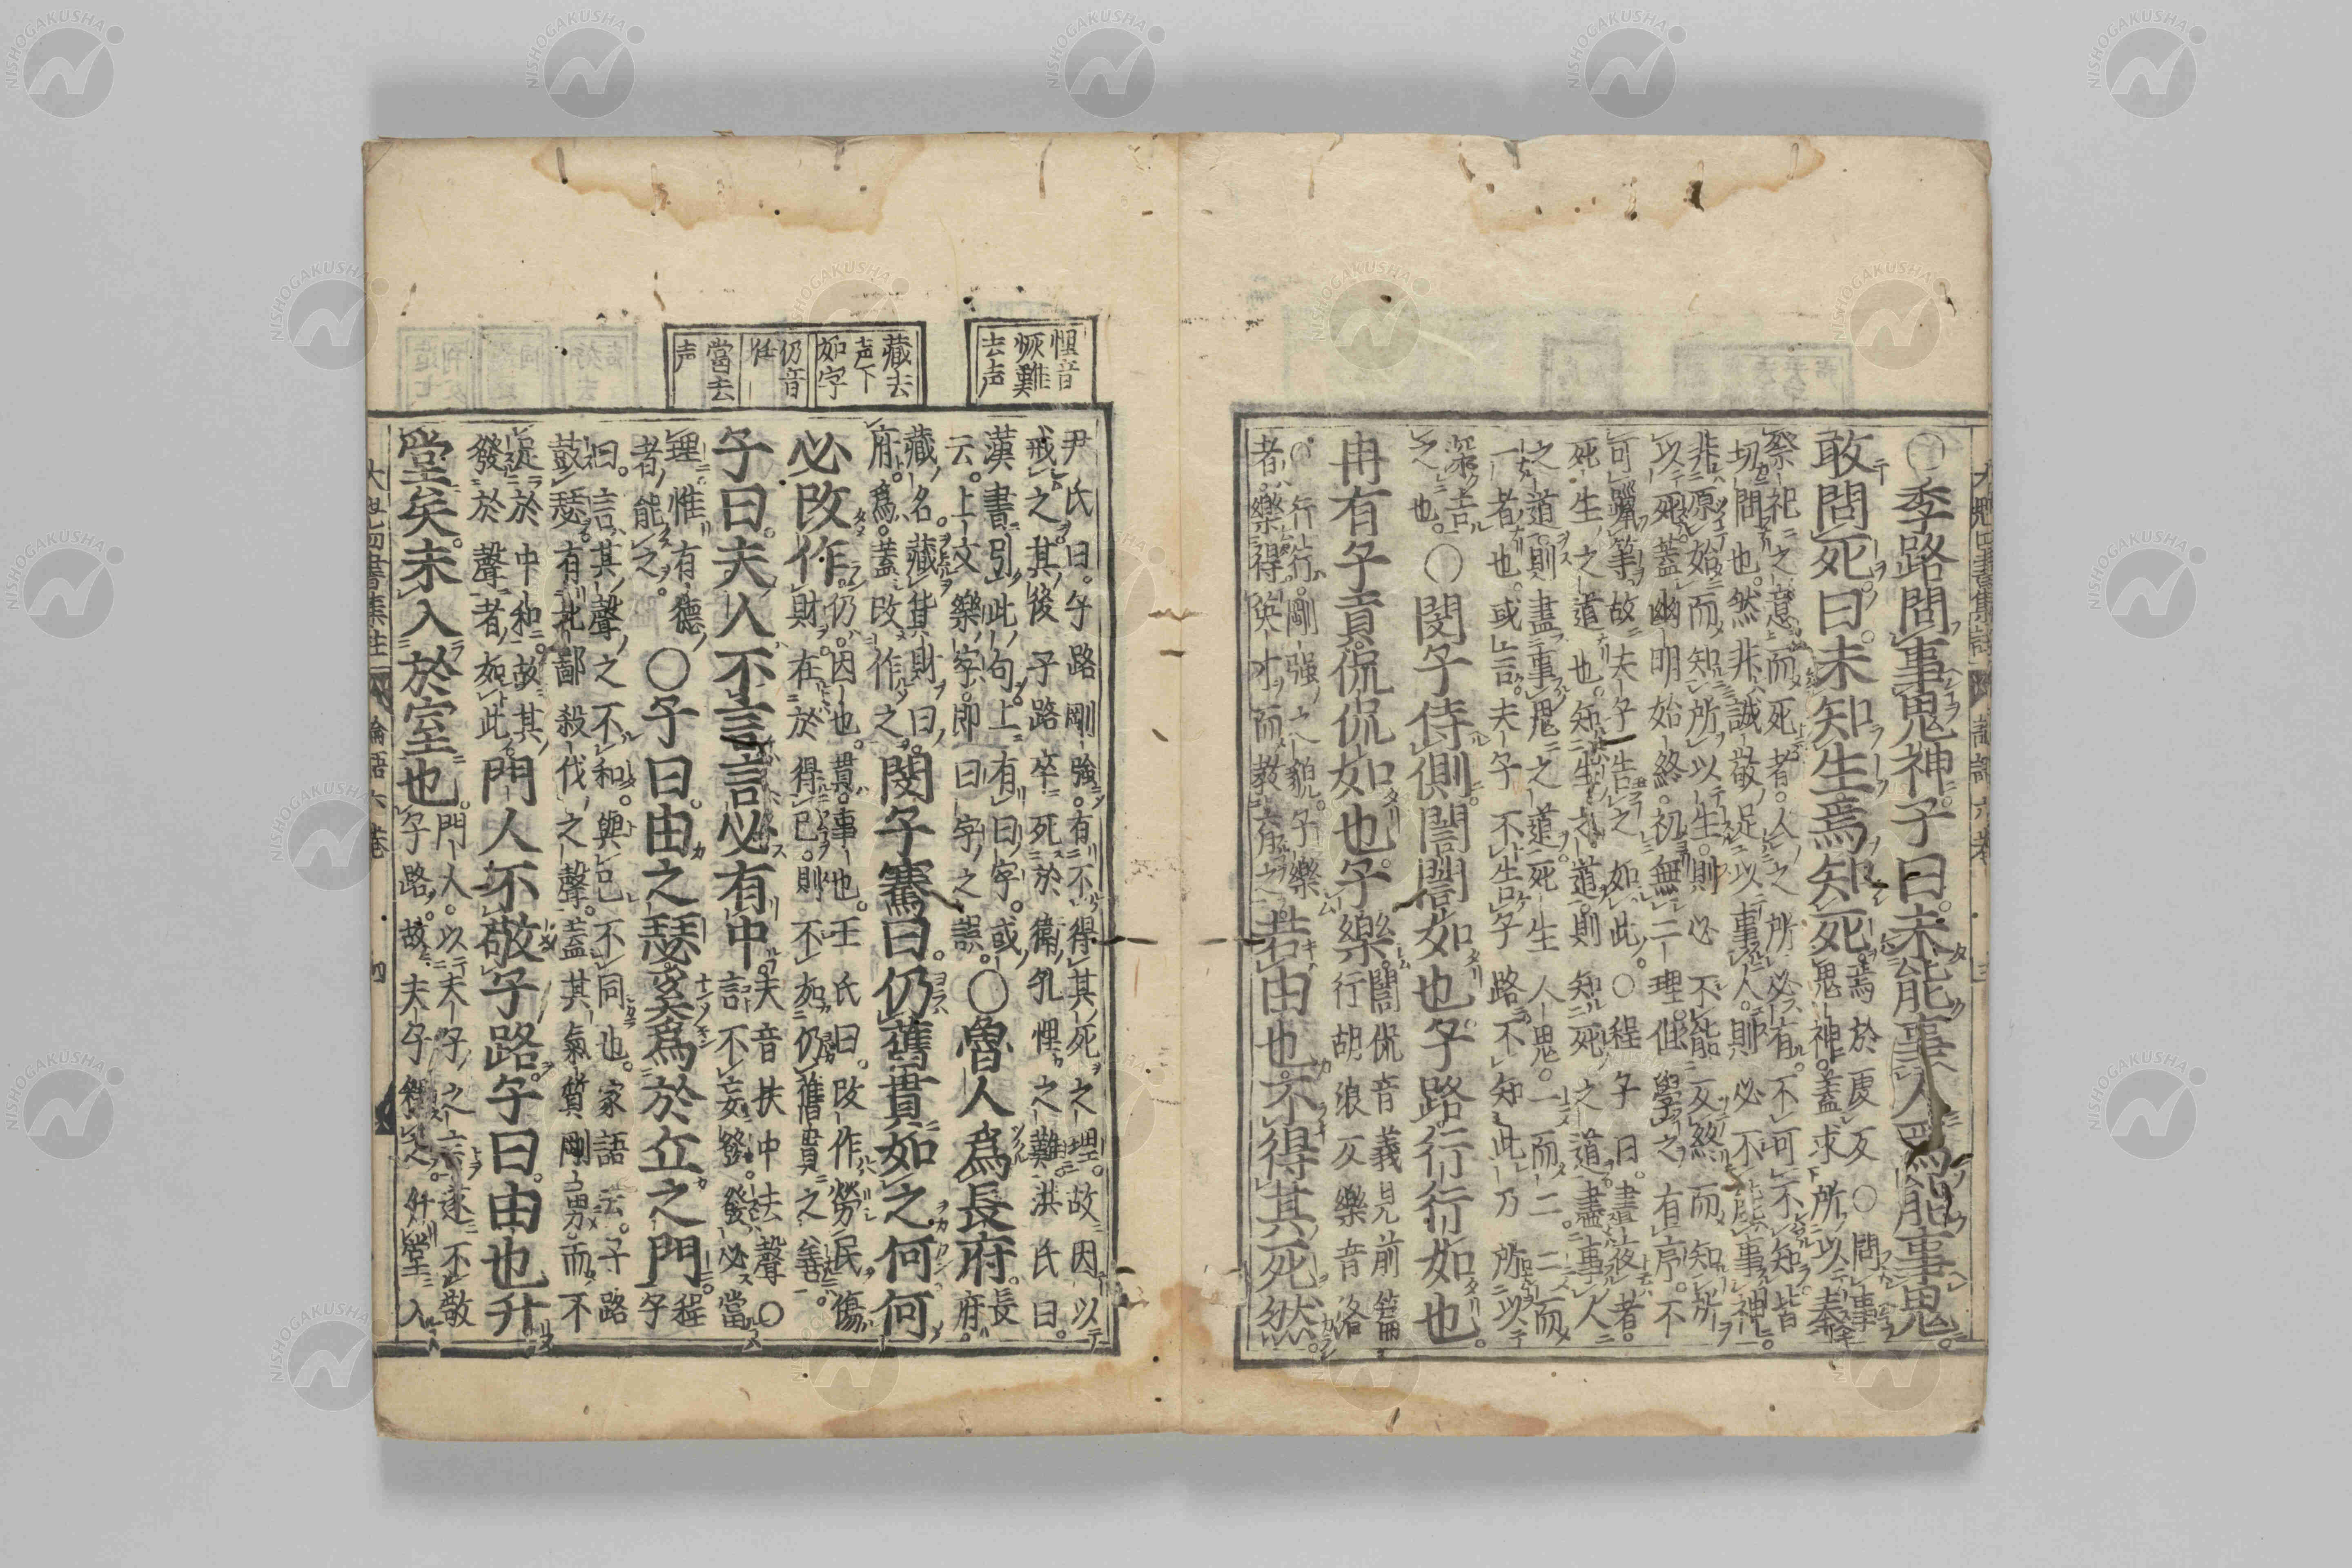 大魁四書集註 論語六巻 三
○季路問事鬼神子曰未能事人焉能事鬼
敢問死曰未知生焉知死
焉於虔反○問事
鬼神蓋求所以奉
祭祀之意而死者人之所必有不可不知皆
切問也然非誠敬足以事人則必不能事神
非原始而知所以生則必不能反終而知所
以死蓋幽明始終初無二理但學之有序不
可躐等故夫子告之如此○程子曰晝夜者
死生之道也知生之道則知死之道盡事人
之道則盡事鬼之道死生人鬼一而二二而
一者也或言夫子不告子路不知此乃所以
深告
之也
○閔子侍側誾誾如也子路行行如也
冉有子貢侃侃如也子樂
誾侃音義見前篇
行胡浪反樂音洛
○行行剛強之貌子樂
者樂得英才而教育之
若由也不得其死然
悝音
恢難
去声
尹氏曰子路剛強有不得其死之理故因以
戒之其後子路卒死於衛孔悝之難洪氏曰
漢書引此句上有曰字或
云上文樂字即曰字之誤
○魯人爲長府
長
府
藏去
声下
如字
仍音
任
當去
声
藏名藏貨財曰
府爲蓋改作之
閔子騫曰仍舊貫如之何何
必改作
仍因也貫事也王氏曰改作勞民傷
財在於得已則不如仍舊貫之善
子曰夫人不言言必有中
夫音扶中去聲○
言不妄發發必當
理惟有德
者能之
○子曰由之瑟奚爲於丘之門
程
子
曰言其聲之不和與己不同也家語云子路
鼓瑟有北鄙殺伐之聲蓋其氣質剛勇而不
足於中和故其
發於聲者如此
門人不敬子路子曰由也升
堂矣未入於室也
門人以夫子之言遂不敬
子路故夫子釋之升堂入
大魁四書集註 論語六巻 四